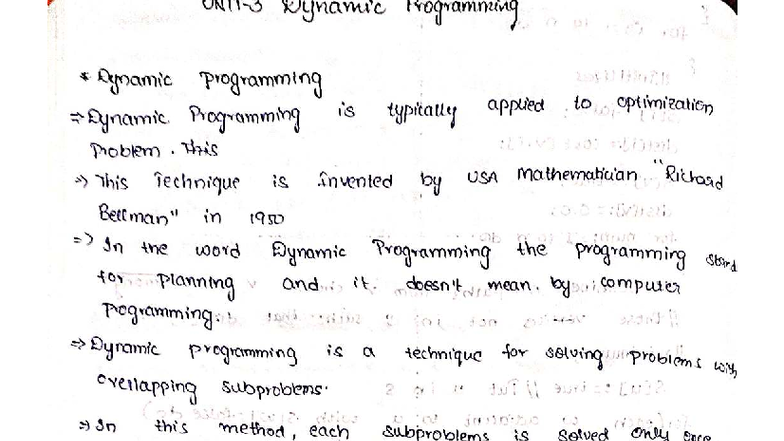 UNIT-3 Dynamic Programming
* Dynamic programming
⇒ Dynamic Programming is typically applied to optimization
Problem. This
⇒ This Technique is invented by USA Mathematician "Richard
Bellman" in 1950
⇒ In the word Dynamic Programming the programming stand
for planning and it doesn't mean by computer
Programming.
⇒ Dynamic programming is a technique for solving problems with
overlapping subproblems.
⇒ In this method, each subproblems is solved only once